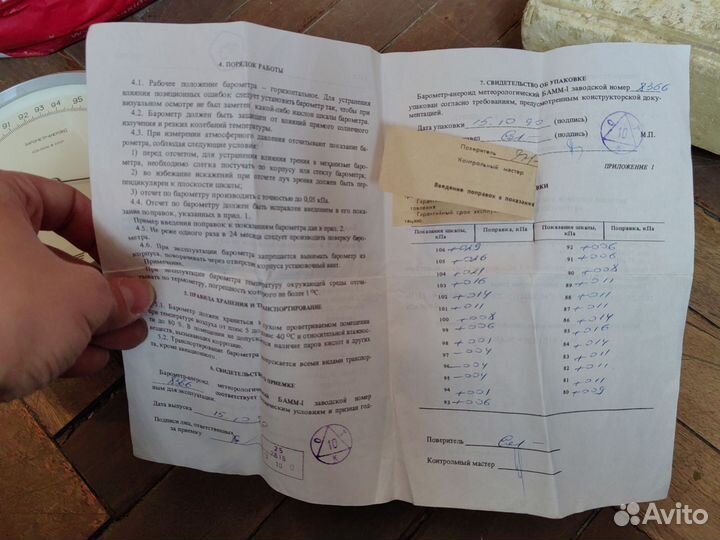 4. ПОРЯДОК РАБОТЫ
4.1. Рабочее положение барометра — горизонтальное. Для устранения
влияния позиционных ошибок следует установить барометр так, чтобы при
визуальном осмотре не был заметен какой-либо наклон шкалы барометра.
4.2. Барометр должен быть защищен от влияний прямого солнечного
излучения и резких колебаний температуры.
4.3. При измерении атмосферного давления отсчитывают показание ба-
рометра, соблюдая следующие условия:
1) перед отсчетом, для устранения влияния трения в механизме баро-
метра, необходимо слегка постучать по корпусу или стеклу барометра;
2) во избежание искажений при отсчете луч зрения должен быть пер-
пендикулярен к плоскости шкалы;
3) отсчет по барометру производить с точностью до 0,05 кПа.
4.4. Отсчет по барометру должен быть исправлен введением в его пока-
зание поправок, указанных в прил. 1.
Пример введения поправок к показаниям барометра дан в прил. 2.
4.5. Не реже одного раза в 24 месяца следует производить поверку баро-
метра.
4.6. При эксплуатации барометра запрещается вынимать барометр из
корпуса, поворачивать через отверстие корпуса установочный винт.
Примечание.
При эксплуатации барометра температуру окружающей среды отсчи-
тывать по термометру, погрешность которого не более 1 °С.
5. ПРАВИЛА ХРАНЕНИЯ И ТРАНСПОРТИРОВАНИЕ
5.1. Барометр должен храниться в сухом проветриваемом помещении
при температуре воздуха от плюс 5 до плюс 40 °С и относительной влажнос-
ти до 80 %. В помещении не допускается наличие паров кислот и других
веществ, вызывающих коррозию.
5.2. Транспортирование барометра всеми видами транспор-
та, кроме авиационного.
6. СВИДЕТЕЛЬСТВО О ПРИЕМКЕ
Барометр-анероид метеорологический БАММ-1 заводской номер
8366 соответствует техническим условиям и признан год-
ным для эксплуатации.
Дата выпуска 15.10.90
Подписи лиц, ответственных
за приемку
10
К
7. СВИДЕТЕЛЬСТВО ОБ УПАКОВКЕ
Барометр-анероид метеорологический БАММ-1 заводской номер 8366
упакован согласно требованиям, предусмотренным конструкторской доку-
ментацией.
Дата упаковки 15.10.90 (подпись)
(подпись) М.П.
10
Поверитель
Контрольный мастер
Введение поправок к показания
ПРИЛОЖЕНИЕ 1
Показания шкалы, кПа Поправка, кПа Показания шкалы, кПа Поправка, кПа
106 +029 92 +006
105 +026 91 +006
104 +021 90 +008
103 +016 89 +011
102 +014 88 +014
101 +011 87 +011
100 +008 86 +014
99 +006 85 +016
98 +001 84 +014
97 -004 83 +011
96 -004 82 +011
95 -004 81 +011
94 +001 80 +009
93 +006
Поверитель
Контрольный мастер
91 92 93 94 95
Avito